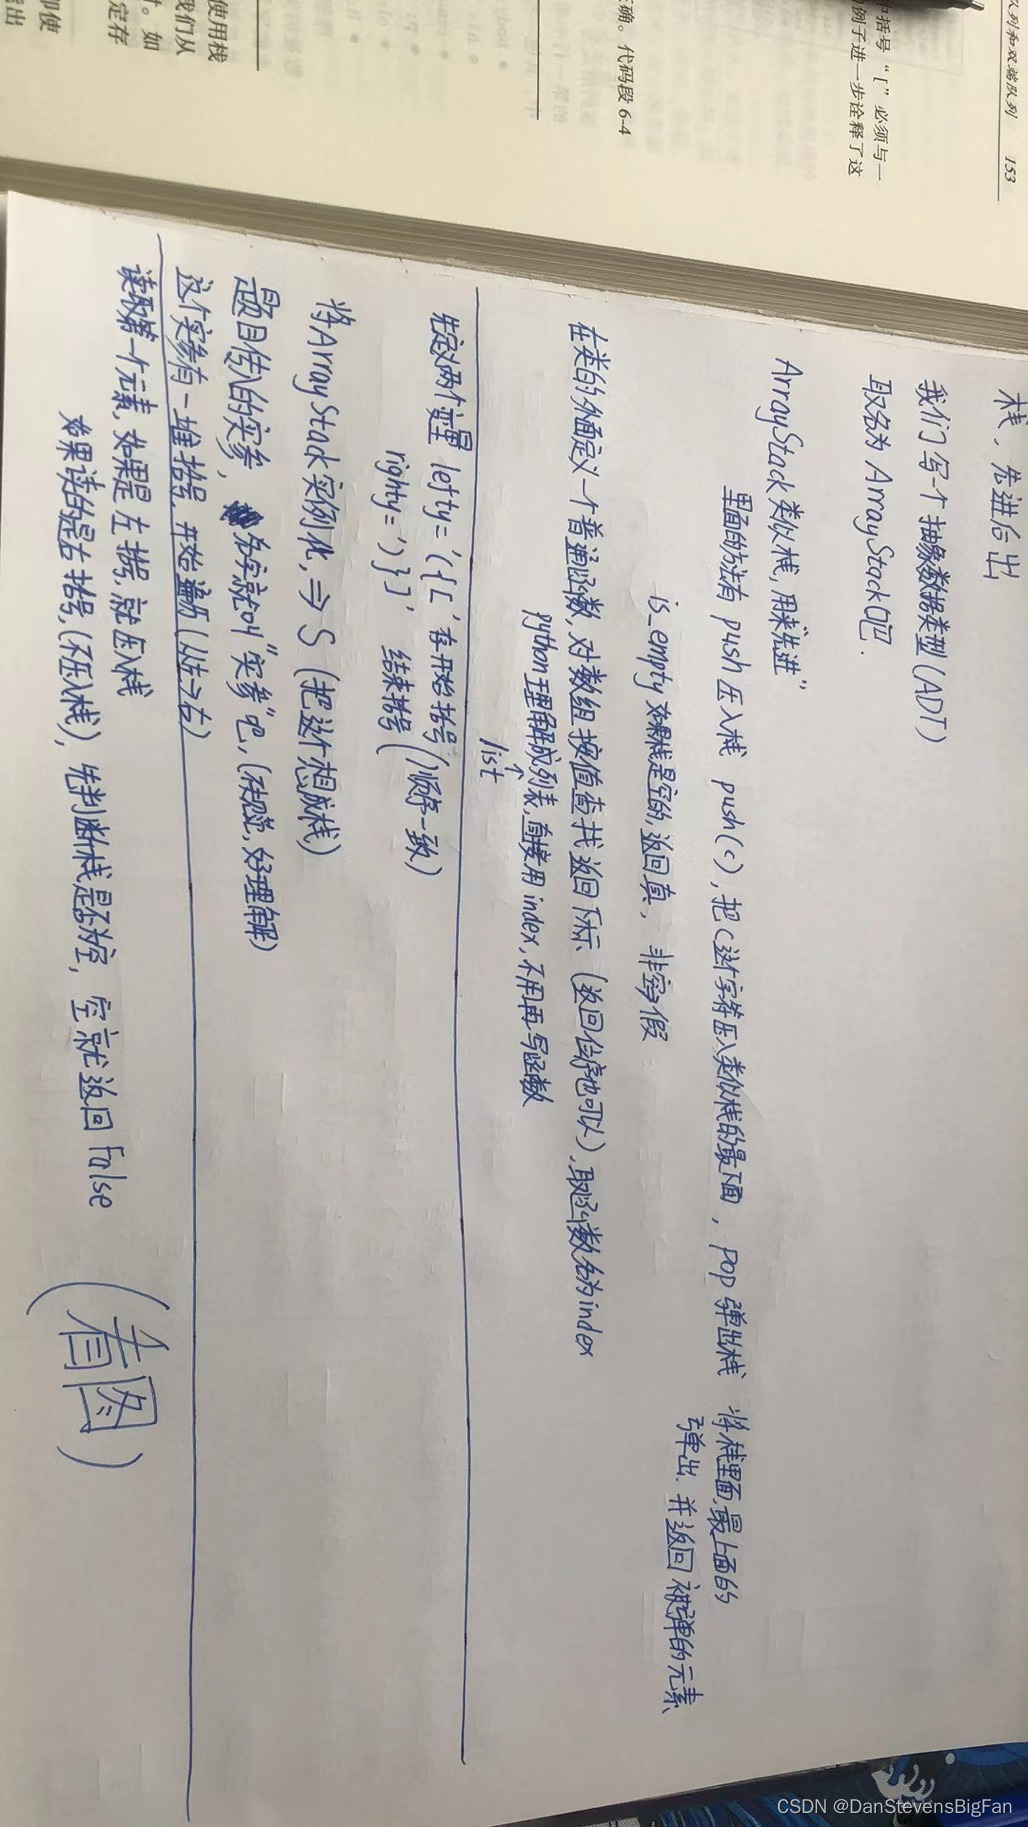 队列和双端队列 153
中括号“[”必须与一
例子进一步诠释了这
正确。代码段 6-4
使用栈
。如
我们从
定存
即使
栈、先进后出
我们写个抽象数据类型(ADT)
取名为 ArrayStack吧.
ArrayStack类似栈,用来“先进”
里面的方法有 push 压入栈 push(c),把c这个字符压入类似栈的最下面,pop 弹出栈 将栈里面,最上面的
弹出.并返回 被弹的元素
is_empty 如果栈是空的,返回真, 非空,假
在类的外面定义一个普通函数,对数组按值查找返回下标(返回位序也可以),取函数名为index
python理解成列表,直接用 index,不用再写函数
↑
list
先定义两个变量 lefty='({[' 存开始括号
righty=')}]' 结束括号 (顺序一致)
将ArrayStack实例化,⇒ S (把这个想成栈)
题目传入的实参, 名字就叫“实参”吧,(存视觉,好理解)
这个实参有一堆括号,开始遍历(从左→右)
读取第一个元素,如果是左括号,就压入栈
如果读的是右括号,(不压入栈),先判断栈是否为空, 空就返回False
(看图)
CSDN @DanStevensBigFan